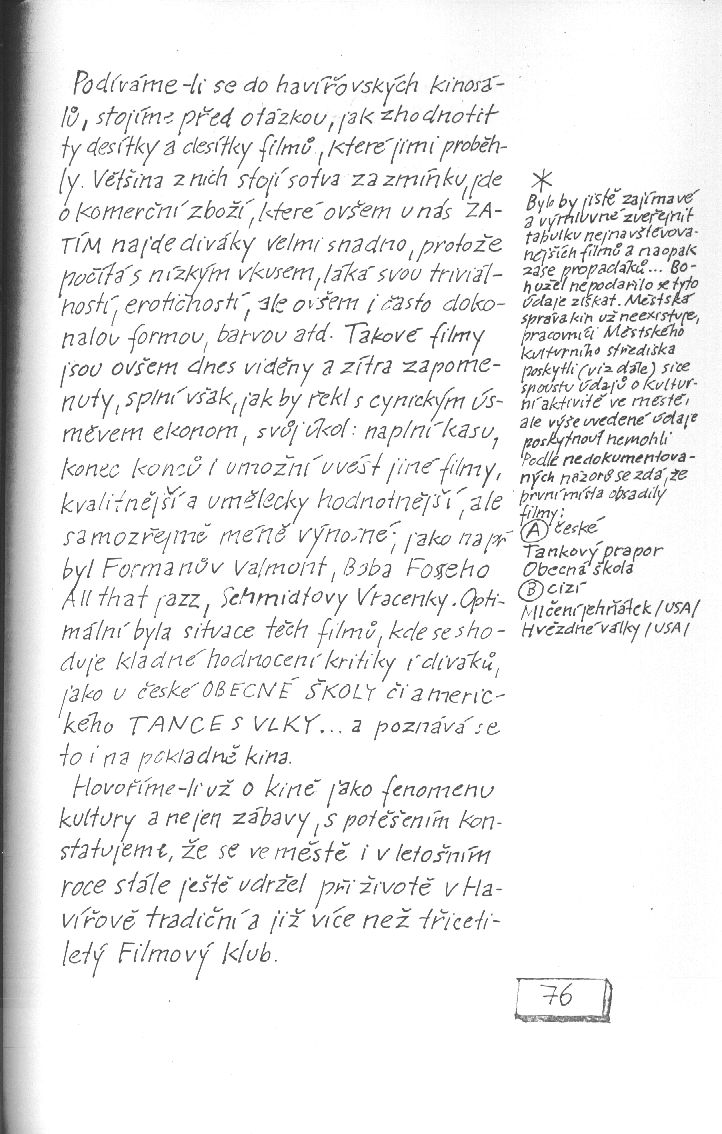 Podíváme-li se do havířovských kinosá-
lů, stojíme před otázkou, jak zhodnotit
ty desítky a desítky filmů, které jimi proběh-
ly. Většina z nich stojí sotva za zmínku, jde
o komerční zboží, které ovšem u nás ZA-
TÍM najde diváky velmi snadno, protože
počítá s nízkým vkusem, láká svou triviál-
ností, erotičností, ale ovšem i často doko-
nalou formou, barvou atd. Takové filmy
jsou ovšem dnes viděny a zítra zapome-
nuty, splní však, jak by řekl s cynickým ús-
měvem ekonom, svůj úkol: naplní kasu,
konec konců i umožní uvést jiné filmy,
kvalitnější a umělecky hodnotnější, ale
samozřejmě méně výnosné; jako např
byl Formanův Valmont, Boba Foseho
All that jazz, Schmidtovy Vracenky. Opti-
mální byla situace těch filmů, kde se sho-
duje kladné hodnocení kritiky i diváků,
jako u české OBECNÉ ŠKOLY či americ-
kého TANCE S VLKY... a poznává se
to i na pokladně kina.
Hovoříme-li už o kině jako fenomenu
kultury a nejen zábavy, s potěšením kon-
statujeme, že se ve městě i v letošním
roce stále ještě udržel při životě v Ha-
vířově tradiční a již více než třiceti-
letý Filmový klub.
*
Bylo by jistě zajímavé
a výmluvné zveřejnit
tabulku nejnavštěvova-
nějších filmů a naopak
zase propadáků... Bo-
hužel nepodařilo se tyto
údaje získat. Městská
správa kin už neexistuje,
pracovníci Městského
kulturního střediska
poskytli (viz dále) sice
spoustu údajů o kultur-
ní aktivitě ve městě,
ale výše uvedené údaje
poskytnout nemohli
Podle nedokumentova-
ných názorů se zdá, že
první místa obsadily
filmy:
(A) české
Tankový prapor
Obecná škola
(B) cizí
Mlčení jehňátek /USA/
Hvězdné války /USA/
76